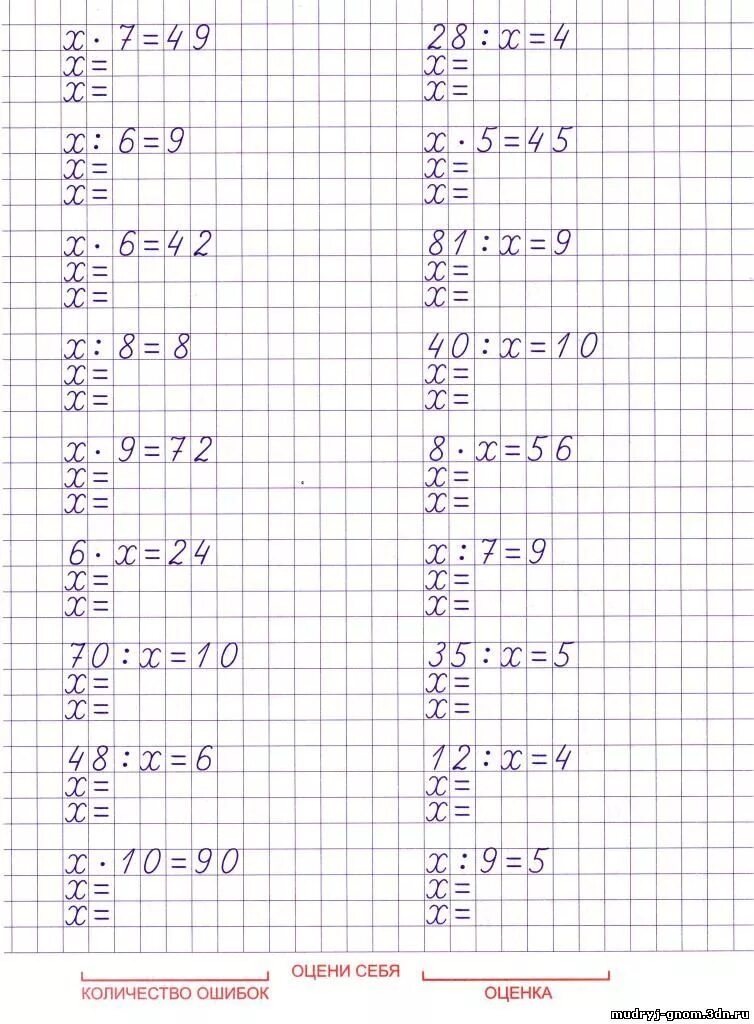 x · 7 = 49
x =
x =
x : 6 = 9
x =
x =
x · 6 = 42
x =
x =
x : 8 = 8
x =
x =
x · 9 = 72
x =
x =
6 · x = 24
x =
x =
70 : x = 10
x =
x =
48 : x = 6
x =
x =
x · 10 = 90
x =
x =
28 : x = 4
x =
x =
x · 5 = 45
x =
x =
81 : x = 9
x =
x =
40 : x = 10
x =
x =
8 · x = 56
x =
x =
x : 7 = 9
x =
x =
35 : x = 5
x =
x =
12 : x = 4
x =
x =
x : 9 = 5
x =
x =
ОЦЕНИ СЕБЯ
КОЛИЧЕСТВО ОШИБОК
ОЦЕНКА
mudryj-gnom.3dn.ru